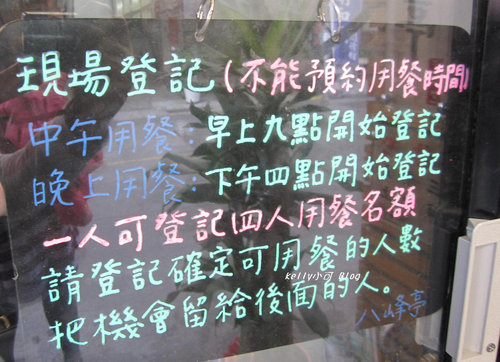 現場登記(不能預約用餐時間)
中午用餐:早上九點開始登記
晚上用餐:下午四點開始登記
一人可登記四人用餐名額
請登記確定可用餐的人數
kelly小可 Blog
把機會留給後面的人。
八峰亭